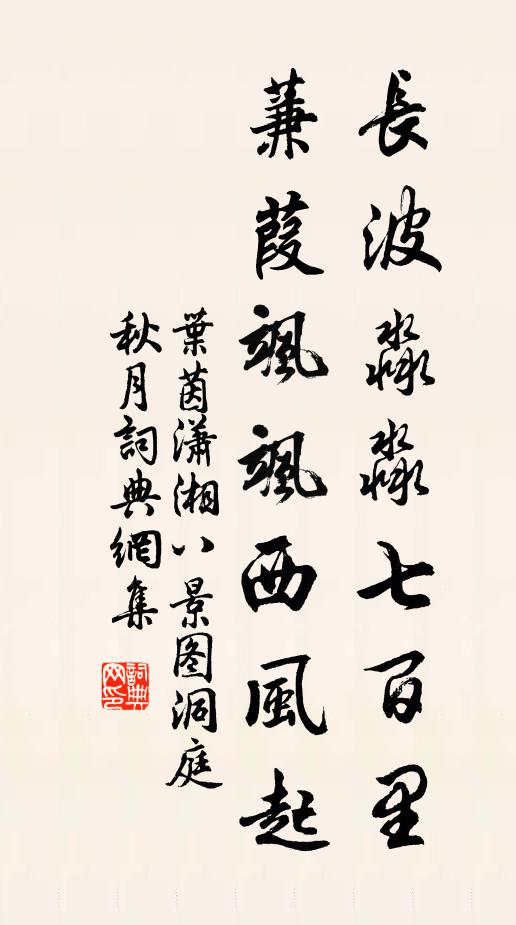 長波淼淼七百里
蒹葭颯颯西風起
葉茵瀟湘八景图洞庭
秋月詞典網集
詞典网印